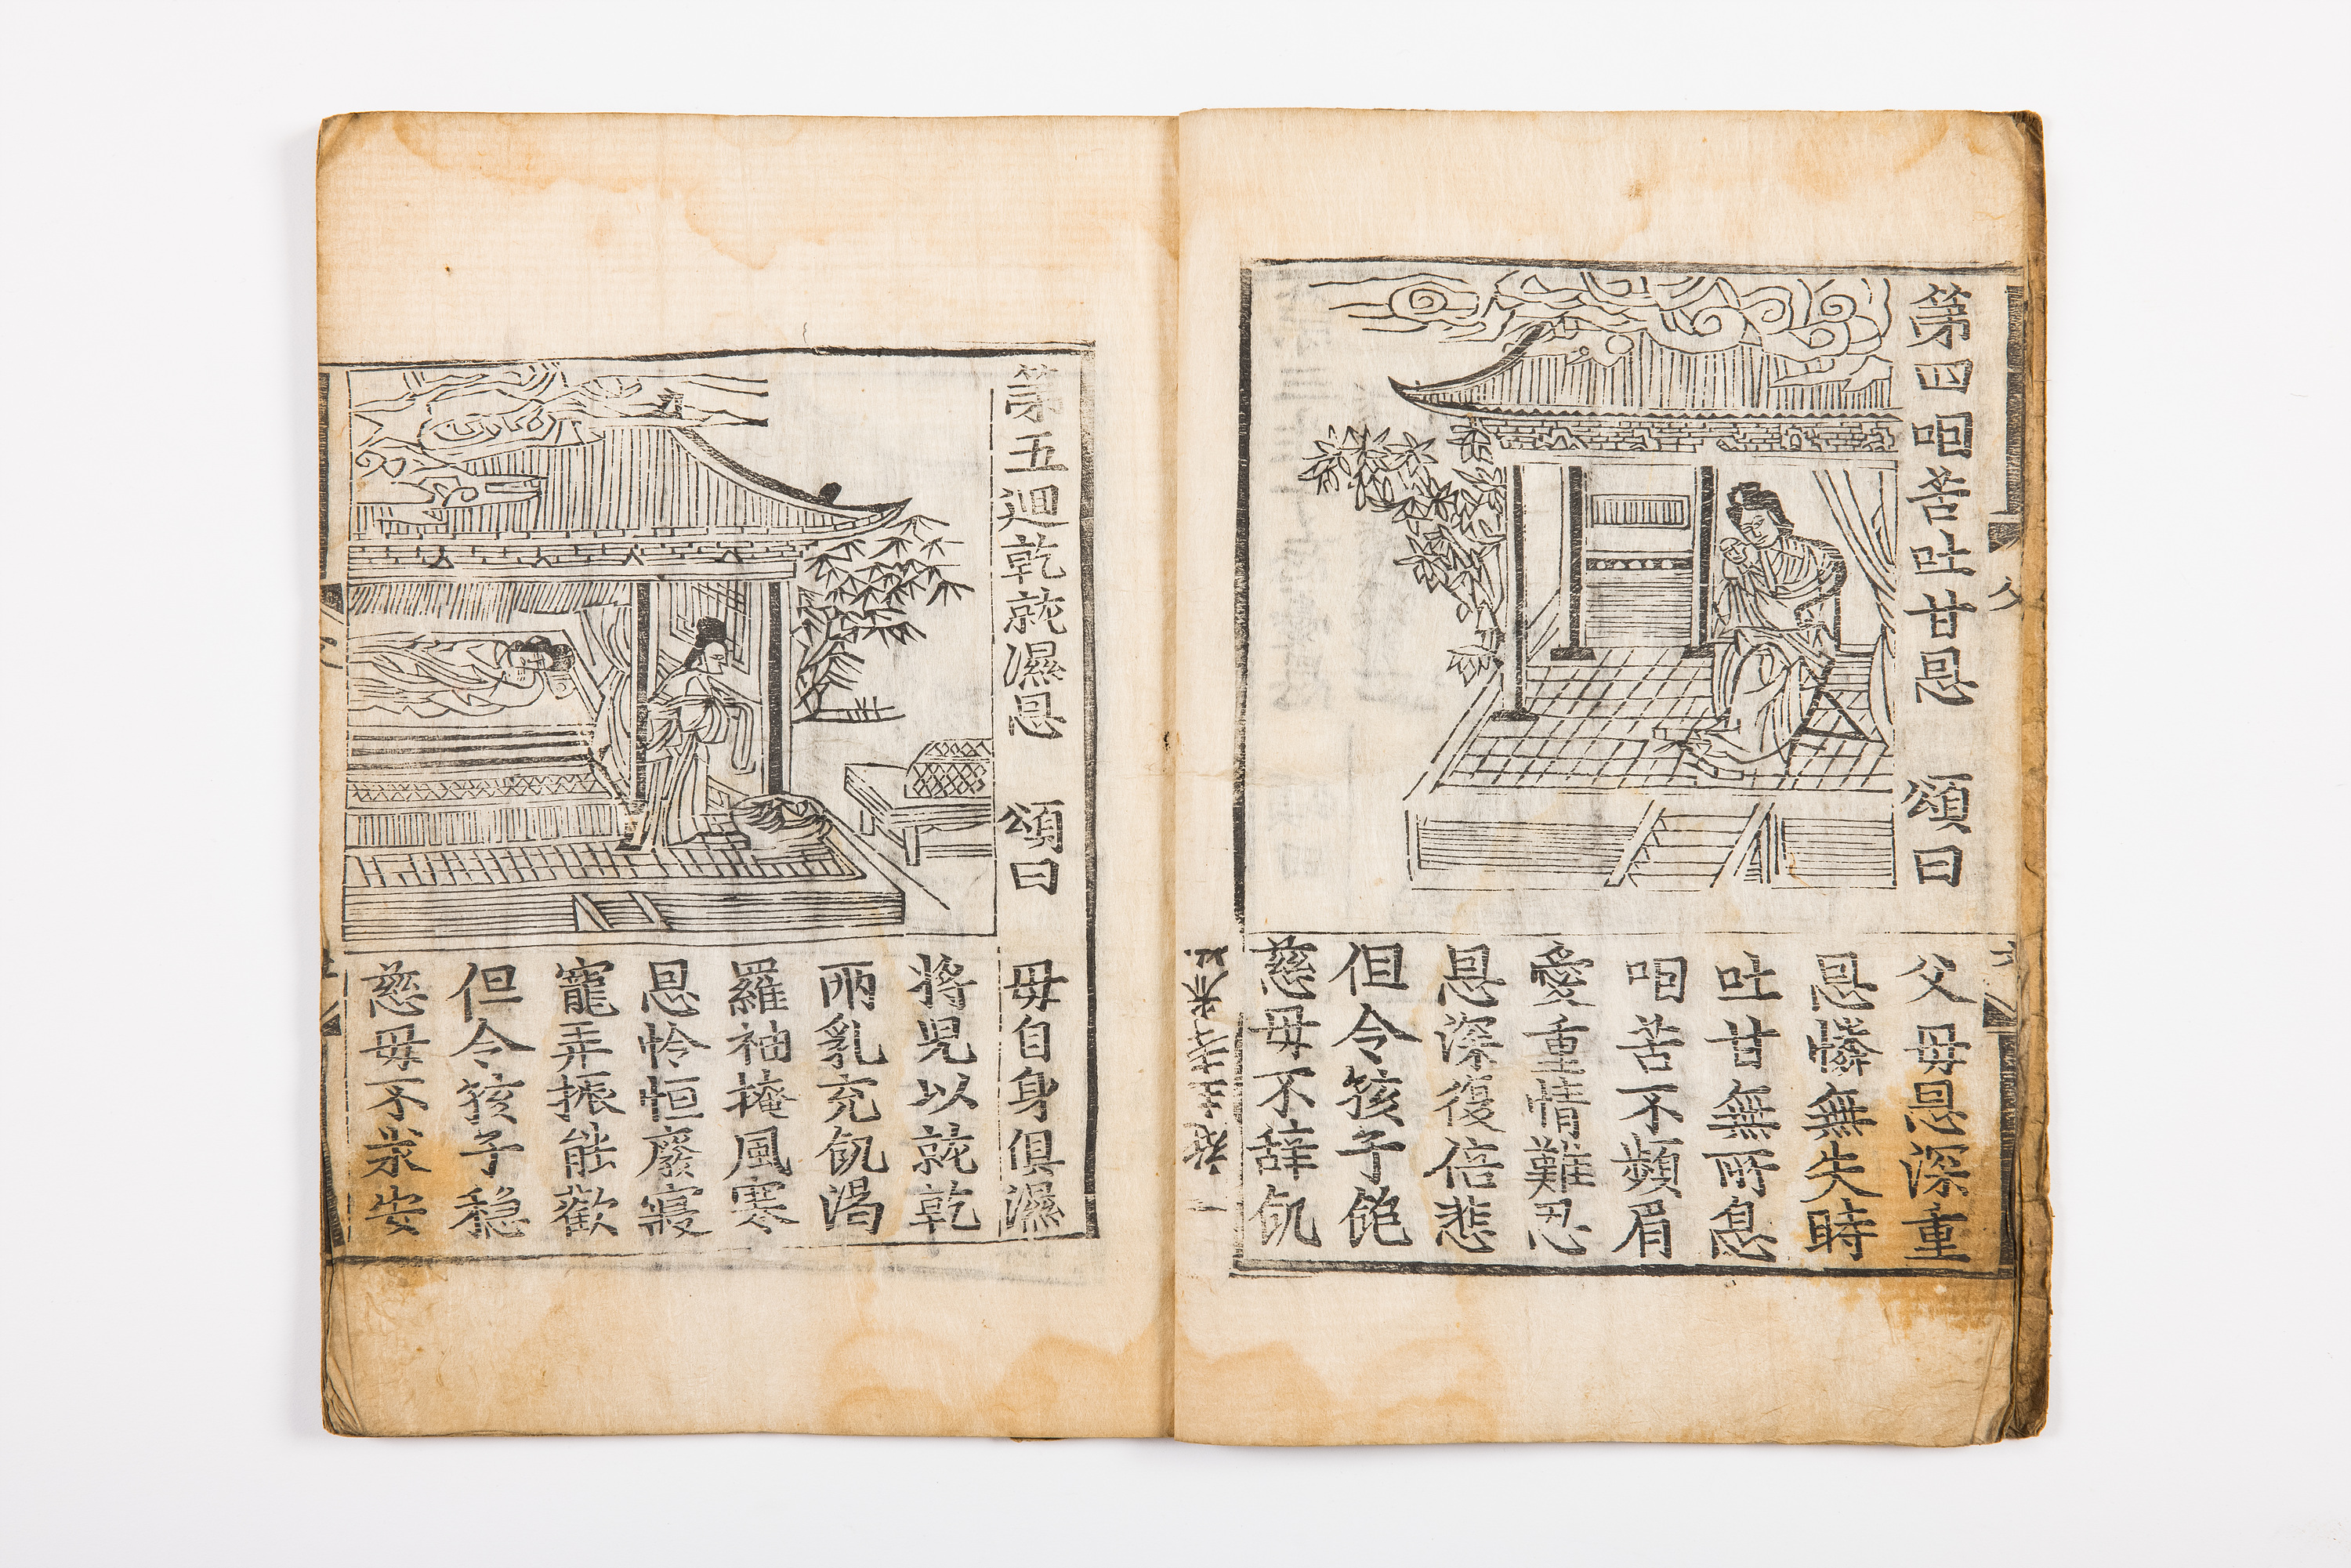 第四咽苦吐甘恩 頌曰
父母恩深重
恩憐無失時
吐甘無所息
咽苦不頻眉
愛重情難忍
恩深復倍悲
但令孩子飽
慈母不辞飢
第五迴乾就濕恩 頌曰
母自身俱濕
將児以就乾
兩乳充飢渴
羅袖掩風寒
恩怜恒廢寢
寵弄振能歡
但令孩子穏
慈母不求安